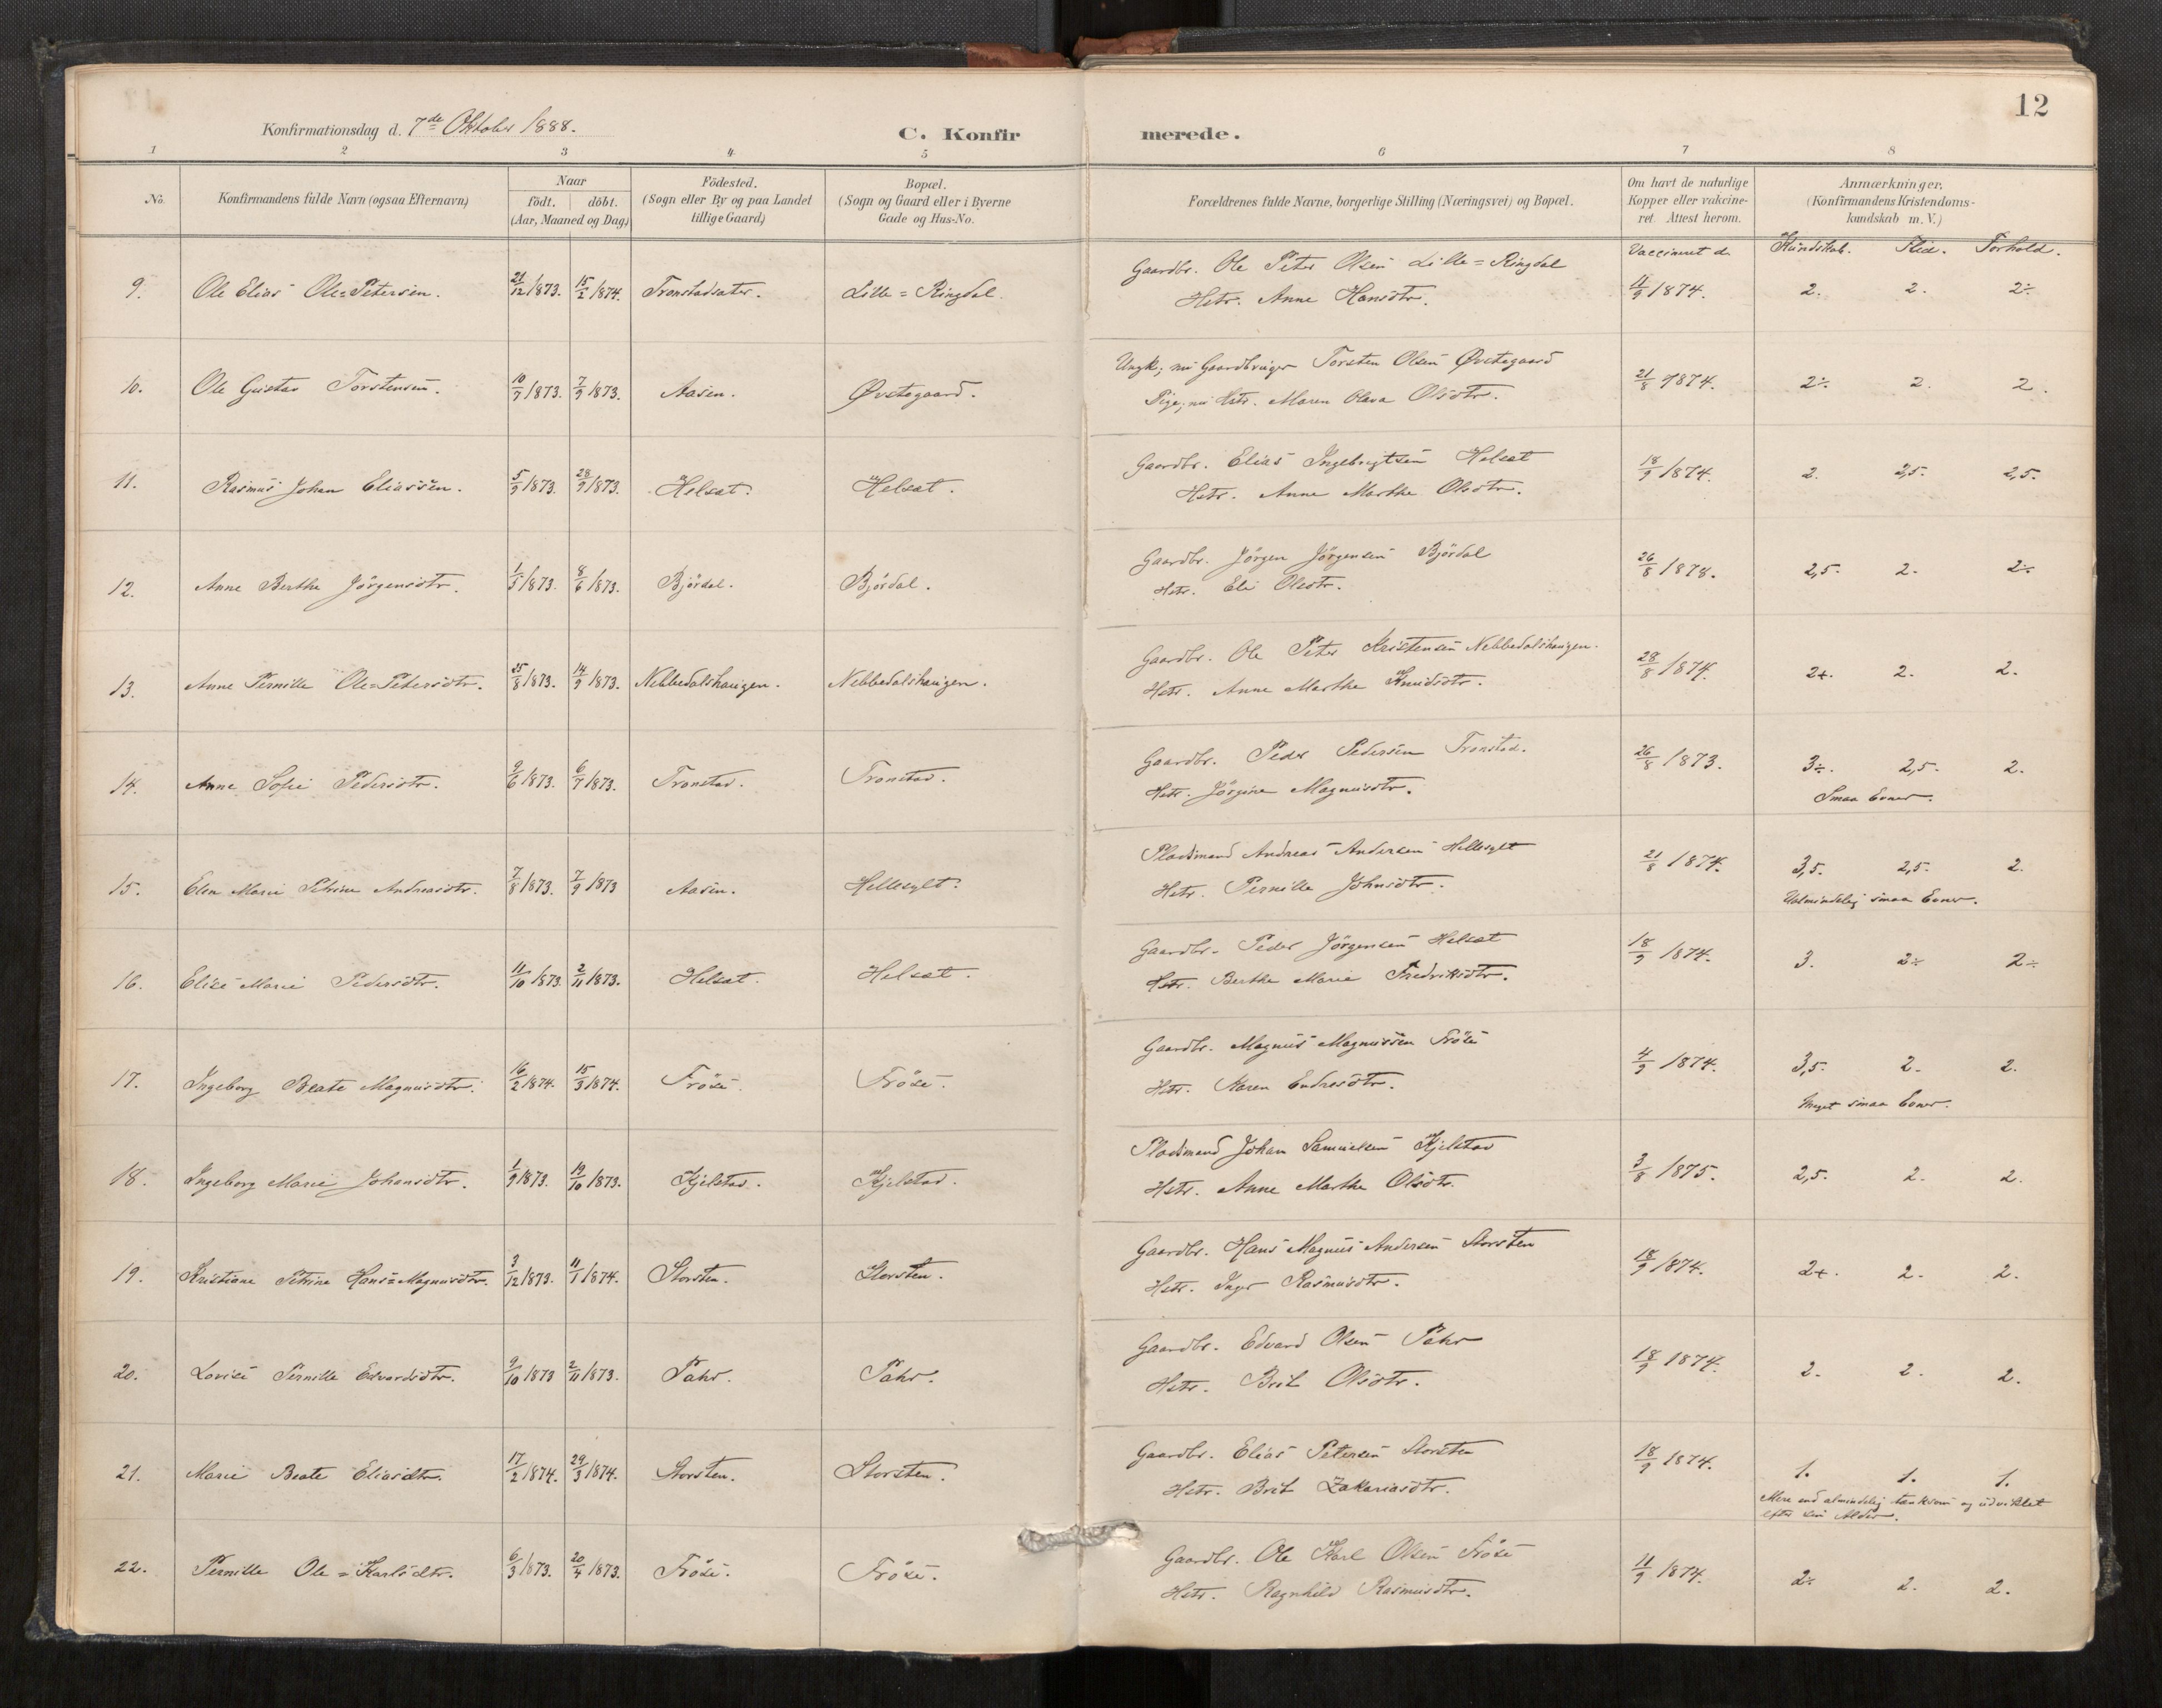 12
Konfirmationsdag d. 7de Oktober 1888.
C. Konfirmerede.
1 2 3 4 5 6 7 8
No. Konfirmandens fulde Navn (ogsaa Efternavn) Naar født. døbt. (Aar, Maaned og Dag) Födested. (Sogn eller By og paa Landet tillige Gaard) Bopæl. (Sogn og Gaard eller i Byerne Gade og Hus-No. Forældrenes fulde Navne, borgerlige Stilling (Næringsvei) og Bopæl. Om havt de naturlige Kopper eller vakcineret Attest herom. Anmærkninger. (Konfirmandens Kristendomskundskab m. V.)
Vaccineret d. Kundskab. Flid. Forhold.
9. Ole Elias Ole=Petersen. 21/12 1873. 15/2 1874. Tronstadsæter. Lille=Ringdal. Gaardbr. Ole Peter Olsen Lille=Ringdal
Hstr. Anne Hansdtr. 11/9 1874. 2. 2. 2÷
10. Ole Gustav Torstensen. 10/7 1873. 7/9 1873. Aasen. Øvstegaard. Ungk; nu Gaardbruger Torsten Olsen Øvstegaard
Pige; nu Hstr. Maren Olava Olsdtr. 21/8 1874. 2÷ 2. 2.
11. Rasmus Johan Eliassen. 5/9 1873. 28/9 1873. Helsæt. Helsæt. Gaardbr. Elias Ingebrigtsen Helsæt
Hstr. Anne Marthe Olsdtr. 18/9 1874. 2. 2,5. 2,5.
12. Anne Berthe Jörgensdtr. 1/5 1873. 8/6 1873. Björdal. Björdal. Gaardbr. Jörgen Jörgensen Björdal
Hstr. Eli Olsdtr. 26/8 1878. 2,5. 2. 2÷
13. Anne Pernille Ole=Petersdtr. 25/8 1873. 14/9 1873. Nebbedalshaugen. Nebbedalshaugen. Gaardbr. Ole Peter Kristensen Nebbedalshaugen.
Hstr. Anne Marthe Knudsdtr. 28/8 1874. 2+. 2. 2.
14. Anne Sofie Pedersdtr. 9/6 1873. 6/7 1873. Tronstad. Tronstad. Gaardbr. Peder Pedersen Tronstad.
Hstr. Jörgine Magnusdtr. 26/8 1873. 3÷. 2,5. 2.
Smaa Evner.
15. Elen Marie Petrine Andreasdtr. 7/8 1873. 7/9 1873 Aasen. Hellesylt. Pladsmand Andreas Andersen Hellesylt
Hstr. Pernille Johnsdtr. 21/8 1874. 3,5. 2,5. 2.
Ualmindelig smaa Evner.
16. Elise Marie Pedersdtr. 11/10 1873. 2/11 1873. Helsæt. Helsæt. Gaardbr. Peder Jörgensen Helsæt
Hstr. Berthe Marie Fredriksdtr. 18/9 1874. 3. 2÷ 2÷
17. Ingeborg Beate Magnusdtr. 16/2 1874. 15/3 1874. Fröse. Fröse. Gaardbr. Magnus Magnussen Fröse
Hstr. Karen Endresdtr. 4/9 1874. 3,5. 2. 2.
Meget smaa Evner.
18. Ingeborg Marie Johansdtr. 1/9 1873. 19/10 1873. Kjelstad. Kjelstad. Pladsmand Johan Samuelsen Kjelstad
Hstr. Anne Marthe Olsdtr. 3/8 1875. 2,5. 2. 2.
19. Kristiane Petrine Hans=Magnusdtr. 3/12 1873. 11/1 1874. Storsten. Storsten. Gaardbr. Hans Magnus Andersen Storsten
Hstr. Inger Rasmusdtr. 18/9 1874. 2+. 2. 2.
20. Lovise Pernille Edvardsdtr. 9/10 1873 2/11 1873. Pahr. Pahr. Gaardbr. Edvard Olsen Pahr
Hstr. Brit Olsdtr. 18/9 1874. 2. 2. 2.
21. Marie Beate Eliasdtr. 17/2 1874. 29/3 1874. Storsten. Storsten. Gaardbr. Elias Petersen Storsten
Hstr. Brit Zakariasdtr. 18/9 1874. 1. 1. 1.
Mere end almindelig tænksom og udviklet
efter sin Alder.
22. Pernille Ole=Karlsdtr. 6/3 1873. 20/4 1873. Fröse. Fröse. Gaardbr. Ole Karl Olsen Fröse
Hstr. Ragnhild Rasmusdtr. 11/9 1874. 2÷ 2. 2.